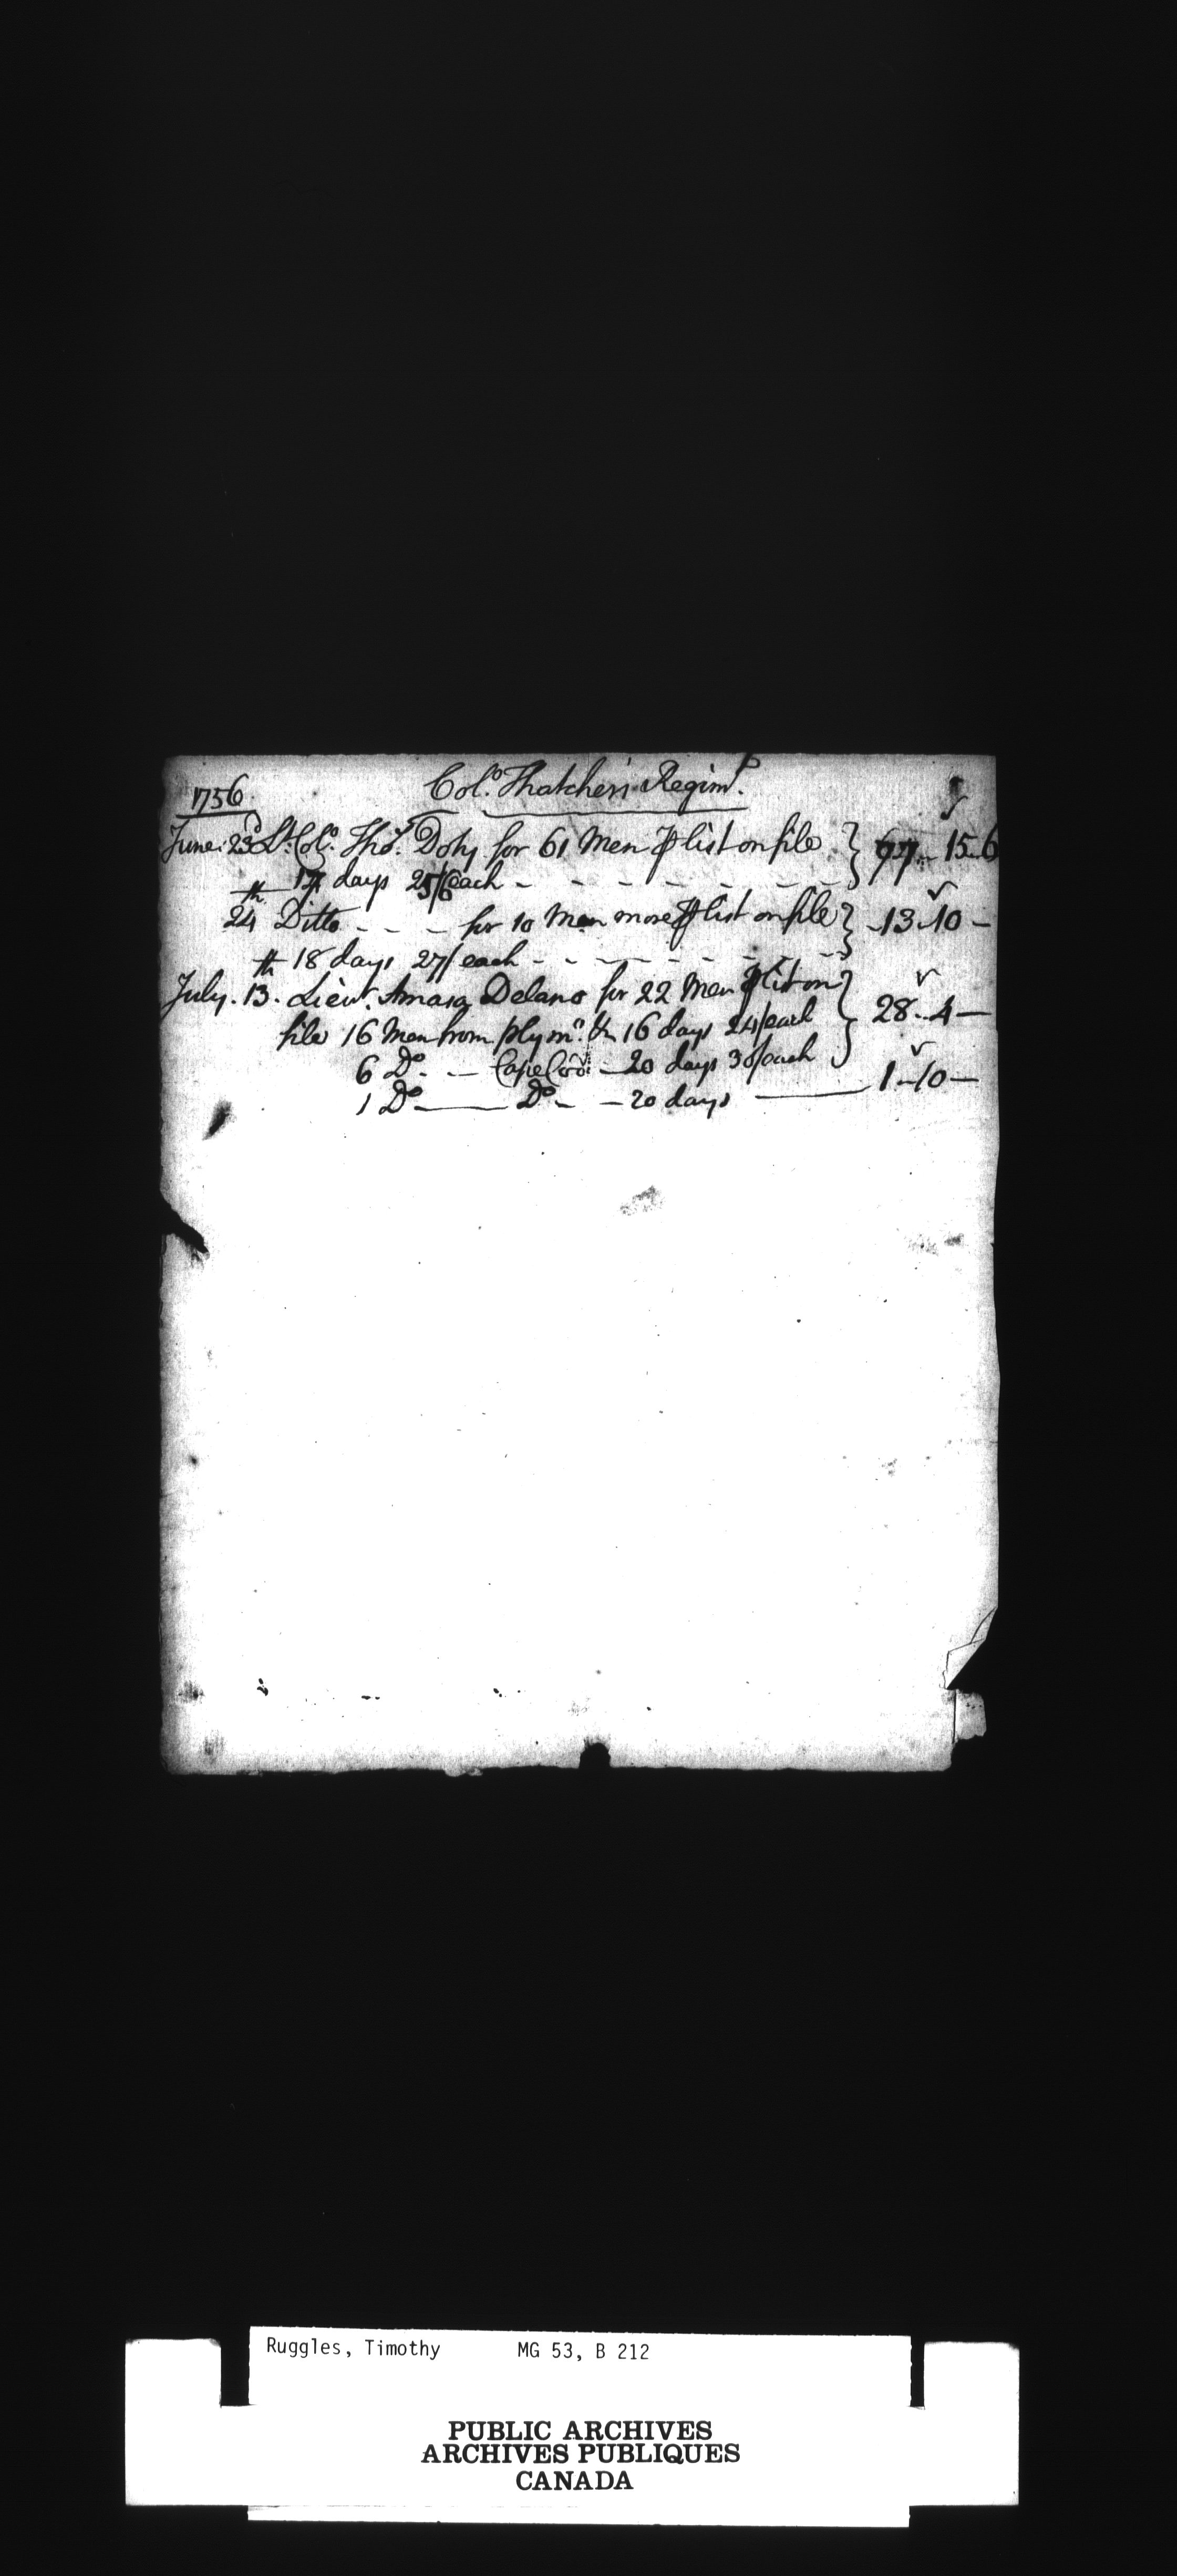 1756 Colo. Thatchers Regimt.
June 23d Lt. Colo. Thos. Doty for 61 Men ⅌ list on file } 77 - 15 - 6
17 days 25/6 each - - - - - - -
24th Ditto - - - for 10 Men more ⅌ list on file } 13 - 10 -
18 days 27/ each - - - - - - -
July. 13th. Lieut. Amasa Delano for 22 Men ⅌ list on
file 16 Men from Plymo. 16 days 24/ each } 28 - 4 -
6 Do. - - Cape Cod - 20 days 30/ each
1 Do ——— Do - - 20 days ——— 1 - 10 -
Ruggles, Timothy MG 53, B 212
PUBLIC ARCHIVES
ARCHIVES PUBLIQUES
CANADA